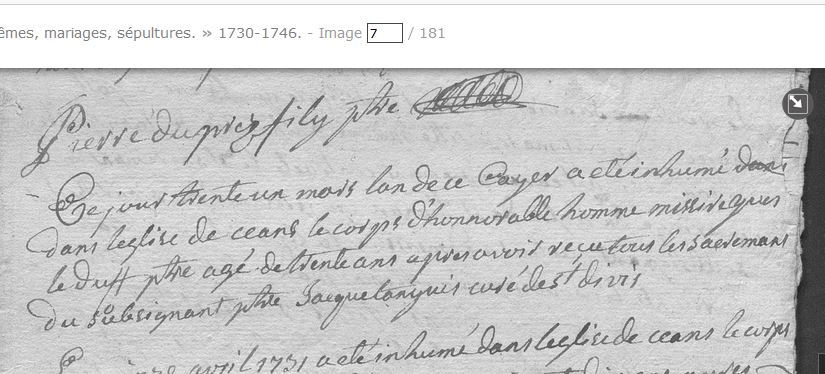 êmes, mariages, sépultures. » 1730-1746. - Image 7 / 181
Pierre duprez fily ptre
Ce jour trente un mars lan de ce Cayer a eté inhumé dans
dans leglise de ceans le corps d'honnorable homme missire yves
le duff ptre agé de trente ans apres avoir recu tous les sacremans
du subsignant ptre Jacque curé de st divi
avril 1731 a eté inhumé dans leglise de ceans le corps